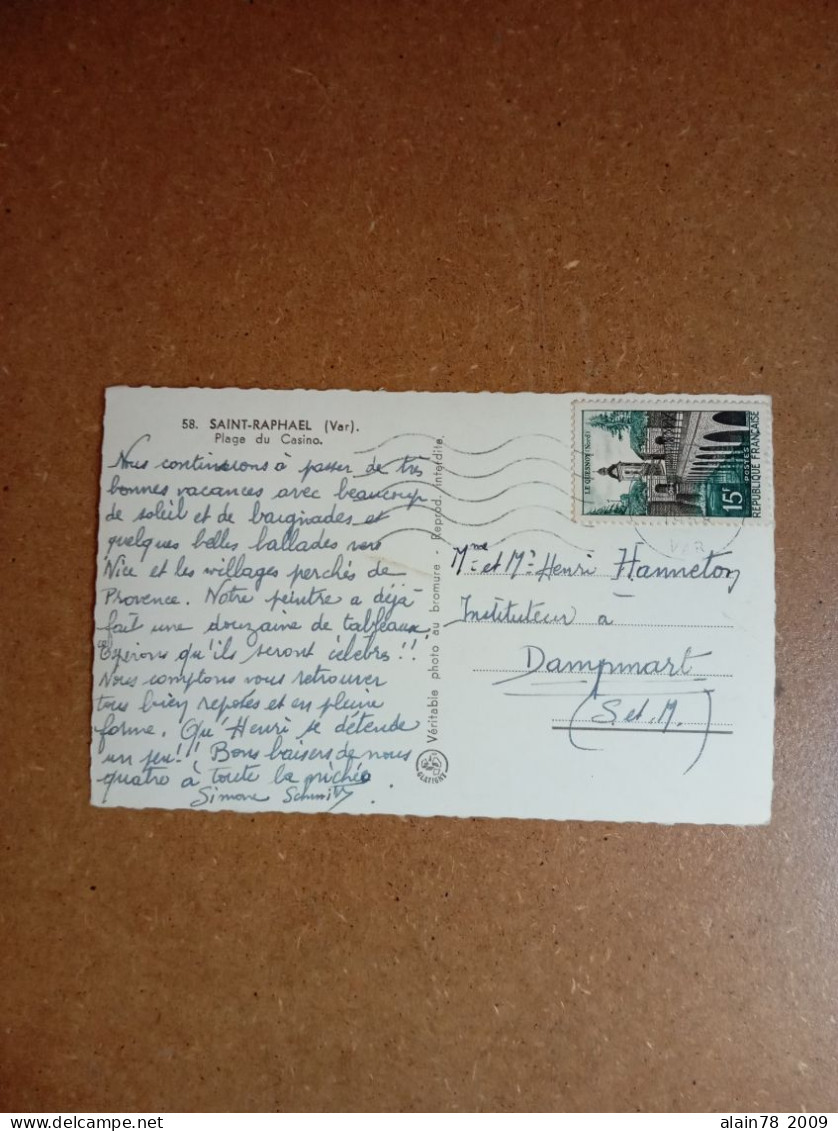 58. SAINT-RAPHAEL (Var).
Plage du Casino.
Nous continuons à passer de très
bonnes vacances avec beaucoup
de soleil et de baignades et
quelques belles ballades vers
Nice et les villages perchés de
Provence. Notre peintre a déjà
fait une douzaine de tableaux.
Espérons qu'ils seront célèbres !!
Nous comptons vous retrouver
tous bien reposés et en pleine
forme. Qu'Henri se détende
un peu !! Bons baisers de nous
quatre à toute la nichée.
Simone Schmitz
Véritable photo au bromure - Reprod. interdite.
LE QUESNOY (Nord)
15F
POSTES
REPUBLIQUE FRANÇAISE
Mme et Mr Henri Hanneton
Instituteur à
Dampmart
(S. et M.)
alain78 2009